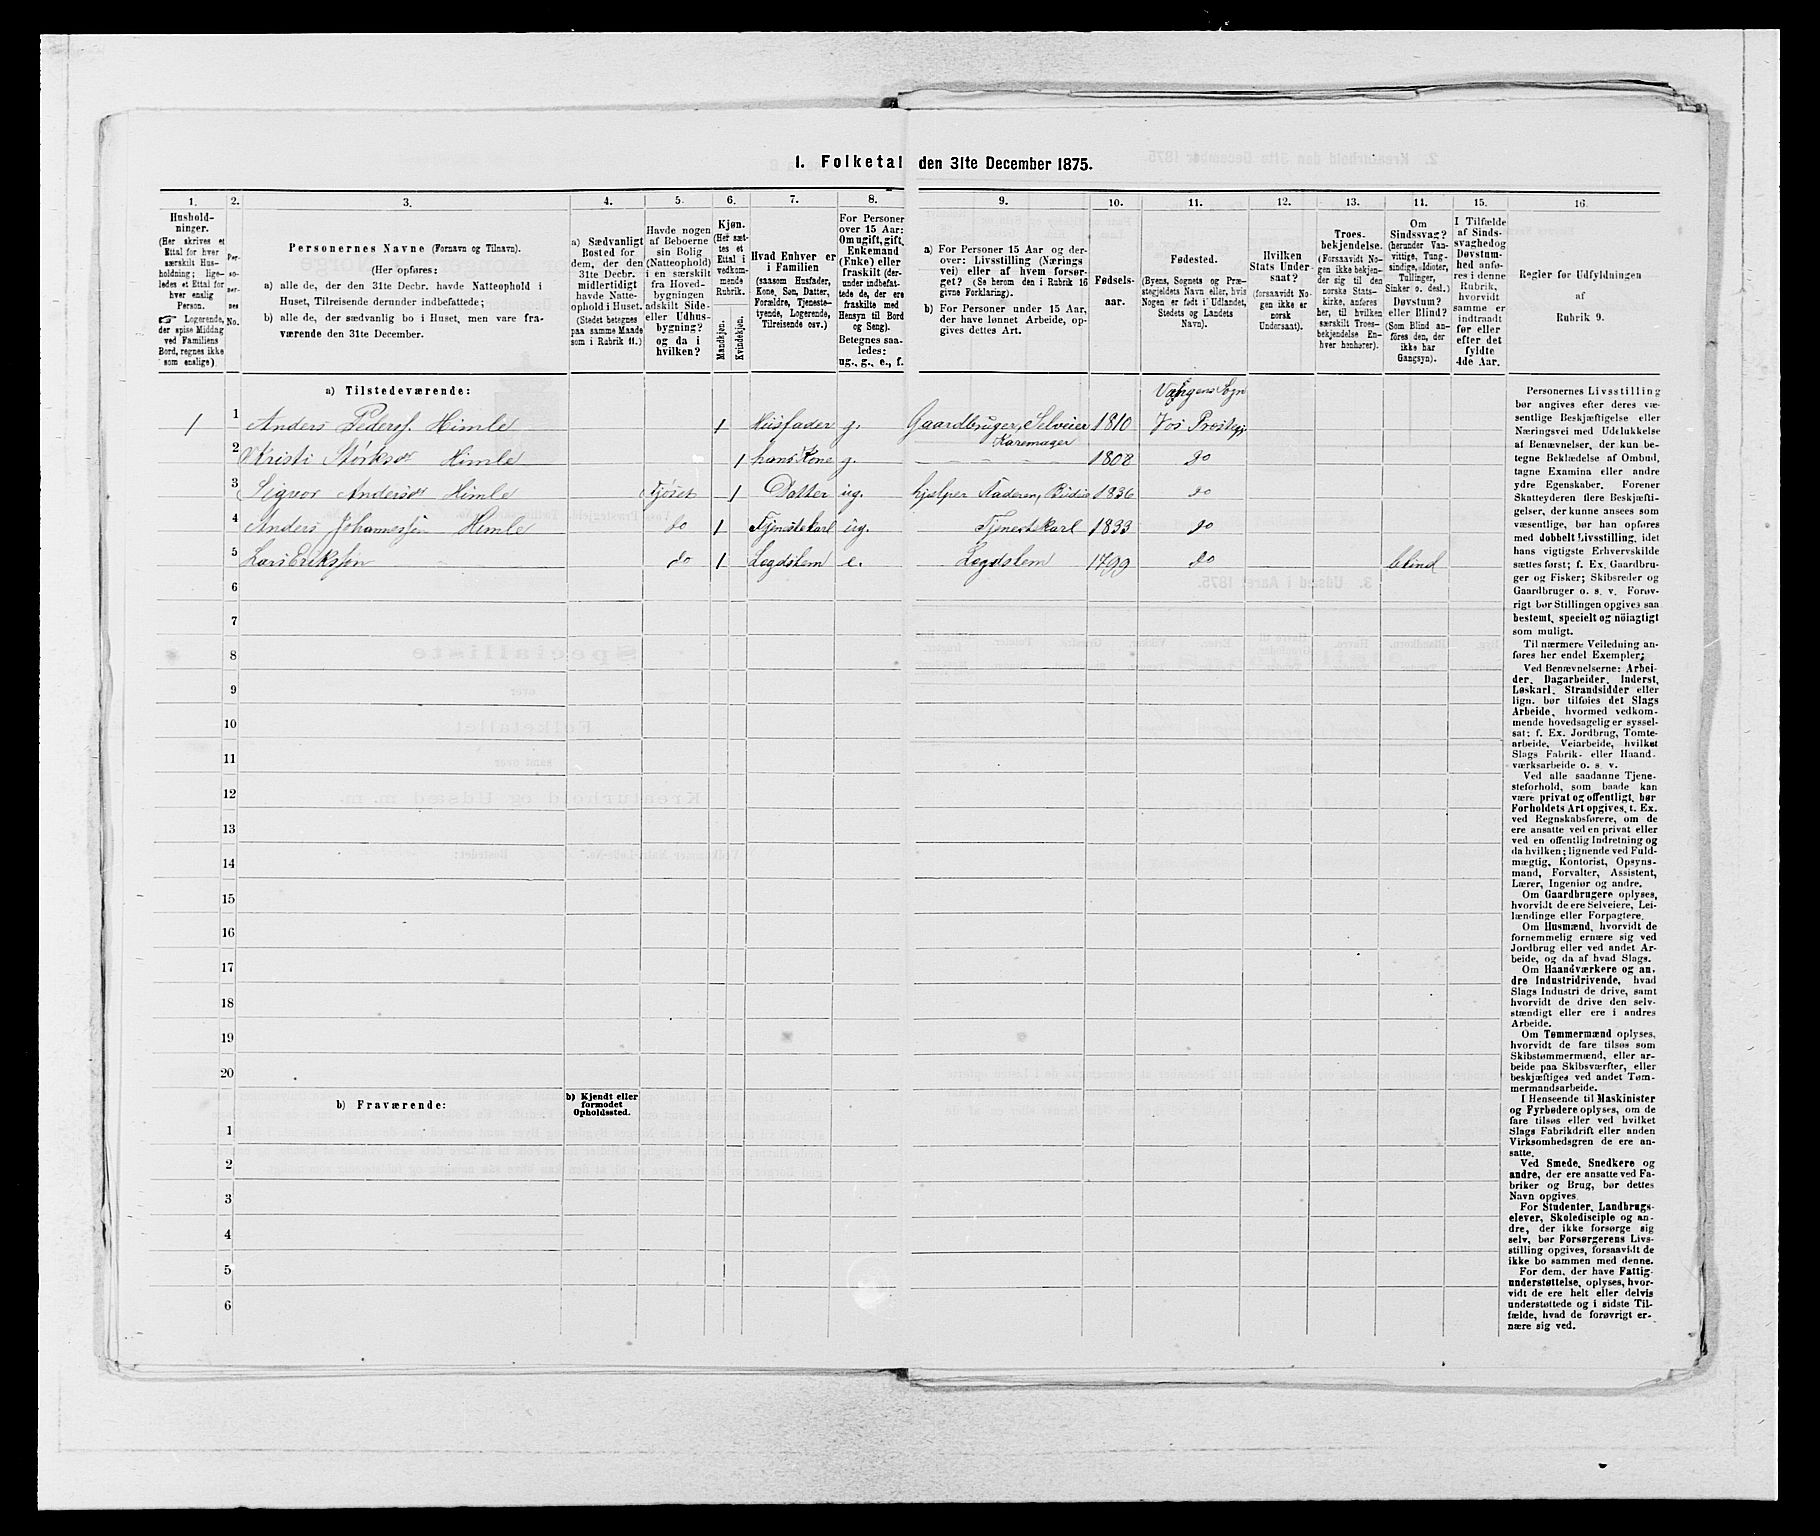 1. Folketal den 31te December 1875.
1. 2. 3. 4. 5. 6. 7. 8. 9. 10. 11. 12. 13. 11. 15. 16.
Hushold-
ninger.
(Her skrives et
Ettal for hver
særskilt Hus-
holdning; lige-
ledes et Ettal for
hver enslig
Person.
☞ Logerende,
der spise Middag
ved Familiens
Bord, regnes ikke
som enslige).
Per-
so-
ner-
nes
No.
Personernes Navne (Fornavn og Tilnavn).
(Her opføres:
a) alle de, der den 31te Decbr. havde Natteophold i
Huset, Tilreisende derunder indbefattede;
b) alle de, der sædvanlig bo i Huset, men vare fra-
værende den 31te December.
a) Sædvanligt
Bosted for
dem, der den
31te Decbr.
midlertidigt
havde Natte-
ophold i Huset.
(Stedet betegnes
paa samme Maade
som i Rubrik 11.)
Havde nogen
af Beboerne
sin Bolig
(Natteophold)
i en særskilt
fra Hoved-
bygningen
adskilt Side-
eller Udhus-
bygning?
og da i
hvilken?
Kjøn.
(Her sæt-
tes et
Ettal i
vedkom-
mende
Rubrik.
Mandkjøn.
Kvindekjøn.
Hvad Enhver er
i Familien
(saasom Husfader,
Kone, Søn, Datter,
Forældre, Tjeneste-
tyende, Logerende,
Tilreisende osv.)
For Personer
over 15 Aar:
Om ugift, gift,
Enkemand
(Enke) eller
fraskilt (der-
under indbefat-
tede de, der ere
fraskilte med
Hensyn til Bord
og Seng).
Betegnes saa-
ledes:
ug., g., e., f.
a) For Personer 15 Aar og der-
over: Livsstilling (Nærings
vei) eller af hvem forsør-
get? (Se herom den i Rubrik 16
givne Forklaring).
b) For Personer under 15 Aar,
der have lønnet Arbeide, op-
gives dettes Art.
Fødsels-
aar.
Fødested.
(Byens, Sognets og Præ-
stegjeldets Navn eller, hvis
Nogen er født i Udlandet,
Stedets og Landets
Navn).
Hvilken
Stats Under-
saat?
(forsaavidt No-
gen ikke er
norsk
Undersaat).
Troes-
bekjendelse.
(Forsaavidt No-
gen ikke bekjen-
der sig til den
norske Stats-
kirke, anføres
her, til hvilken
særskilt Troes-
bekjendelse En-
hver henhører).
Om
Sindssvag?
(herunder Van-
vittige, Tung-
sindige, Idioter,
Tullinger,
Sinker o. desl.)
Døvstum?
eller Blind?
(Som Blind an-
føres den, der
ikke har
Gangsyn).
I Tilfælde
af Sinds-
svaghed og
Døvstum-
hed anfø-
res i denne
Rubrik,
hvorvidt
samme er
indtraadt
før eller
efter det
fyldte
4de Aar.
Regler for Udfyldningen
af
Rubrik 9.
a) Tilstedeværende:
Vangens Sogn
1 1 Anders Peders. Himle 1 Husfader g. Gaardbruger, Selveier 1810 Vos Prestegj
Karemager
2 Kristi Størksdr Himle 1 hans Kone g. 1808 do
3 Sigvor Andersdr Himle Fjøset 1 Datter ug. hjelper Faderen, Budeie 1836 do
4 Anders Johannessen Himle do 1 Tjenestekarl ug. Tjenestekarl 1833 do
5 Lars Eriksen do 1 Legdslem e. Legdslem 1799 do blind
6
7
8
9
10
11
12
13
14
15
16
17
18
19
20
b) Fraværende:
b) Kjendt eller
formodet
Opholdssted.
1
2
3
4
5
6
Personernes Livsstilling
bør angives efter deres væ-
sentlige Beskjæftigelse eller
Næringsvei med Udelukkelse
af Benævnelser, der kun be-
tegne Beklædelse af Ombud,
tagne Examina eller andre
ydre Egenskaber. Forener
Skatteyderen flere Beskjæfti-
gelser, der kunne ansees som
væsentlige, bør han opføres
med dobbelt Livsstilling, idet
hans vigtigste Erhvervskilde
sættes først; f. Ex. Gaardbru-
ger og Fisker; Skibsreder og
Gaardbruger o. s. v. Forøv-
rigt bør Stillingen opgives saa
bestemt, specielt og nöiagtigt
som muligt.
Til nærmere Veiledning an-
føres her endel Exempler:
Ved Benævnelserne: Arbei-
der, Dagarbeider, Inderst,
Løskarl, Strandsidder eller
lign. bør tilføies det Slags
Arbeide, hvormed vedkom-
mende hovedsagelig er syssel-
sat; f. Ex. Jordbrug, Tomte-
arbeide, Veiarbeide, hvilket
Slags Fabrik- eller Haand-
værksarbeide o. s. v.
Ved alle saadanne Tjene-
steforhold, som baade kan
være privat og offentligt, bør
Forholdets Art opgives, t. Ex.
ved Regnskabsførere, om de
ere ansatte ved en privat eller
ved en offentlig Indretning og
da hvilken; lignende ved Fuld-
mægtig, Kontorist, Opsyns-
mand, Forvalter, Assistent,
Lærer, Ingeniør og andre.
Om Gaardbrugere oplyses,
hvorvidt de ere Selveiere, Lei-
lændinge eller Forpagtere.
Om Husmænd, hvorvidt de
fornemmelig ernære sig ved
Jordbrug eller ved andet Ar-
beide, og da af hvad Slags.
Om Haandværkere og an-
dre Industridrivende, hvad
Slags Industri de drive, samt
hvorvidt de drive den selv-
stændigt eller ere i andres
Arbeide.
Om Tømmermænd oplyses,
hvorvidt de fare tilsøs som
Skibstømmermænd, eller ar-
beide paa Skibsværfter, eller
beskjæftiges ved andet Tøm-
mermandsarbeide.
I Henseende til Maskinister
og Fyrbødere oplyses, om de
fare tilsøs eller ved hvilket
Slags Fabrikdrift eller anden
Virksomhedsgren de ere an-
satte.
Ved Smede, Snedkere og
andre, der ere ansatte ved Fa-
briker og Brug, bør dettes
Navn opgives.
For Studenter, Landbrugs-
elever, Skoledisciple og an-
dre, der ikke forsørge sig
selv, bør Forsørgerens Livs-
stilling opgives, forsaavidt de
ikke bo sammen med denne.
For dem, der have Fattig-
understøttelse, oplyses, hvor-
vidt de ere helt eller delvis
understøttede og i sidste Til-
fælde, hvad de forøvrigt er-
nære sig ved.